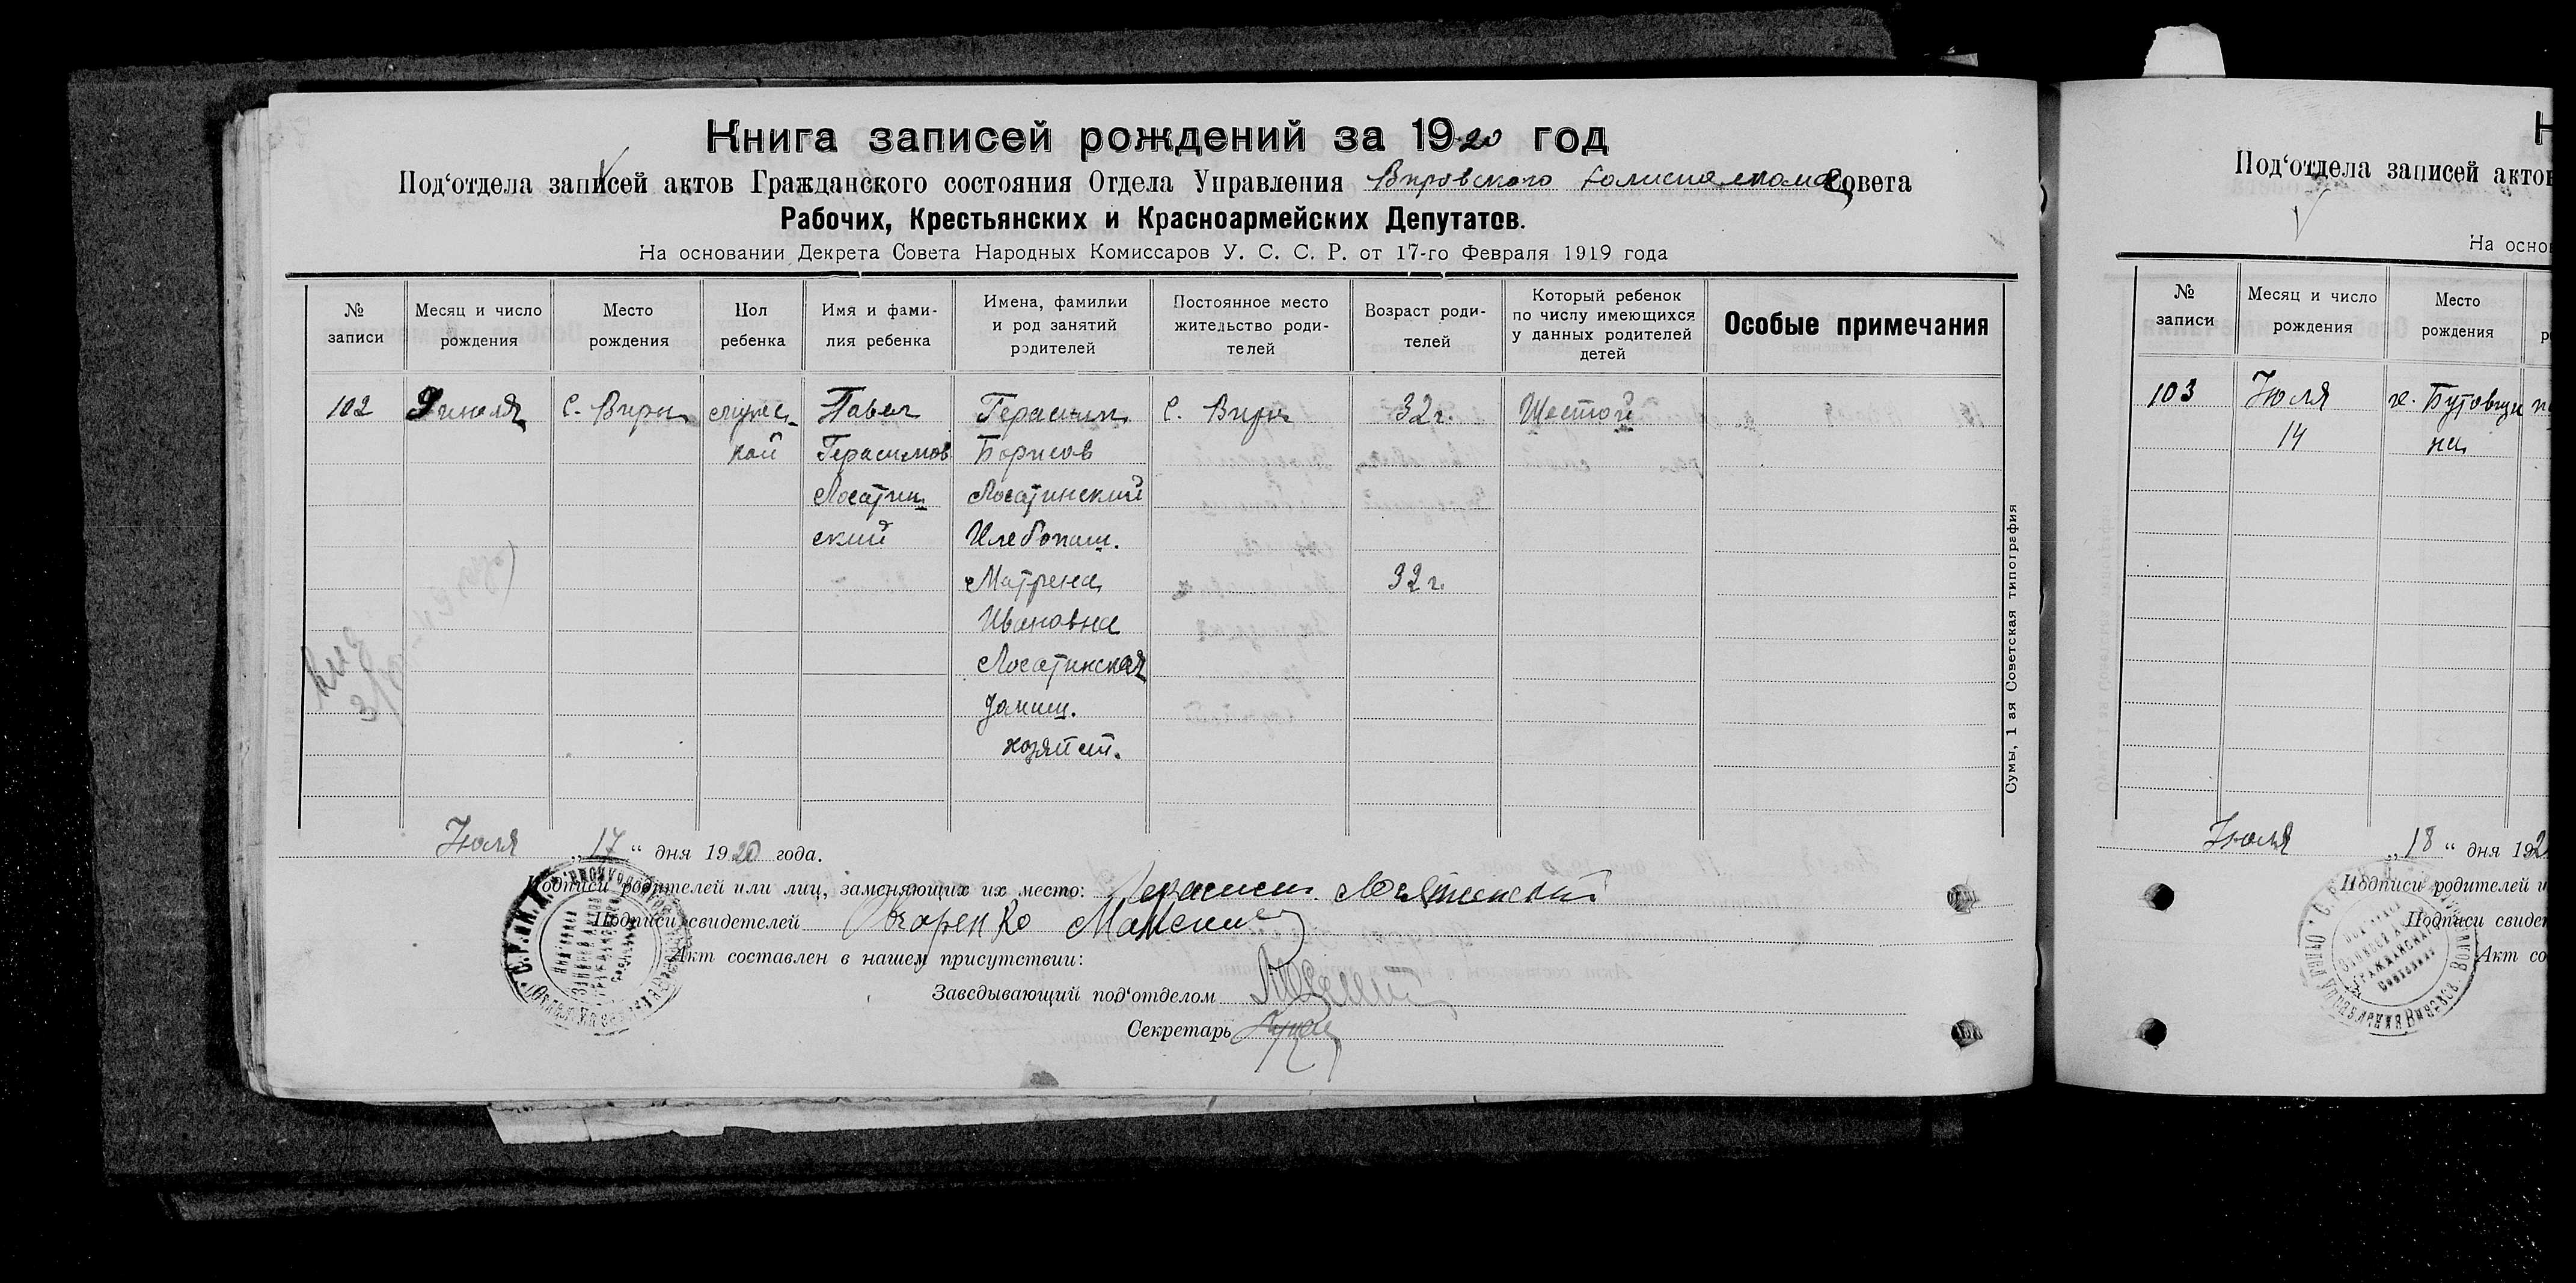 Книга записей рождений за 1920 год
Под‘отдела записей актов Гражданского состояния Отдела Управления Вировского Совета
Рабочих, Крестьянских и Красноармейских Депутатов.
На основании Декрета Совета Народных Комиссаров У. С. С. Р. от 17-го Февраля 1919 года
№ записи
Месяц и число рождения
Место рождения
Пол ребенка
Имя и фами-
лия ребенка
Имена, фамилии
и род занятий
родителей
Постоянное место
жительство роди-
телей
Возраст роди-
телей
Который ребенок
по числу имеющихся
у данных родителей
детей
Особые примечания
102
9 июля
с. Виры
мужес-
кой
Павел
Герасимов
Лосятин-
ский
Герасим
Борисов
Лосятинский
Хлебопаш.
Матрена
Ивановна
Лосятинская
домаш.
хозяйст.
С. Виры
32 г.
32 г.
Шестой
Июля „17“ дня 1920 года.
Подписи родителей или лиц, заменяющих их место: Герасим Лосятинский
Подписи свидетелей Овчаренко Максим
Акт составлен в нашем присутствии:
Заведывающий под‘отделом
Секретарь
Сумы, 1 ая Советская типография
Под‘отдела записей актов
На основ
№
записи
Месяц и число
рождения
Место
рождения
103
Июля
14
х. Бутовщи
на
Июля „18“ дня 192
Подписи родителей и
Подписи свидет
Акт со